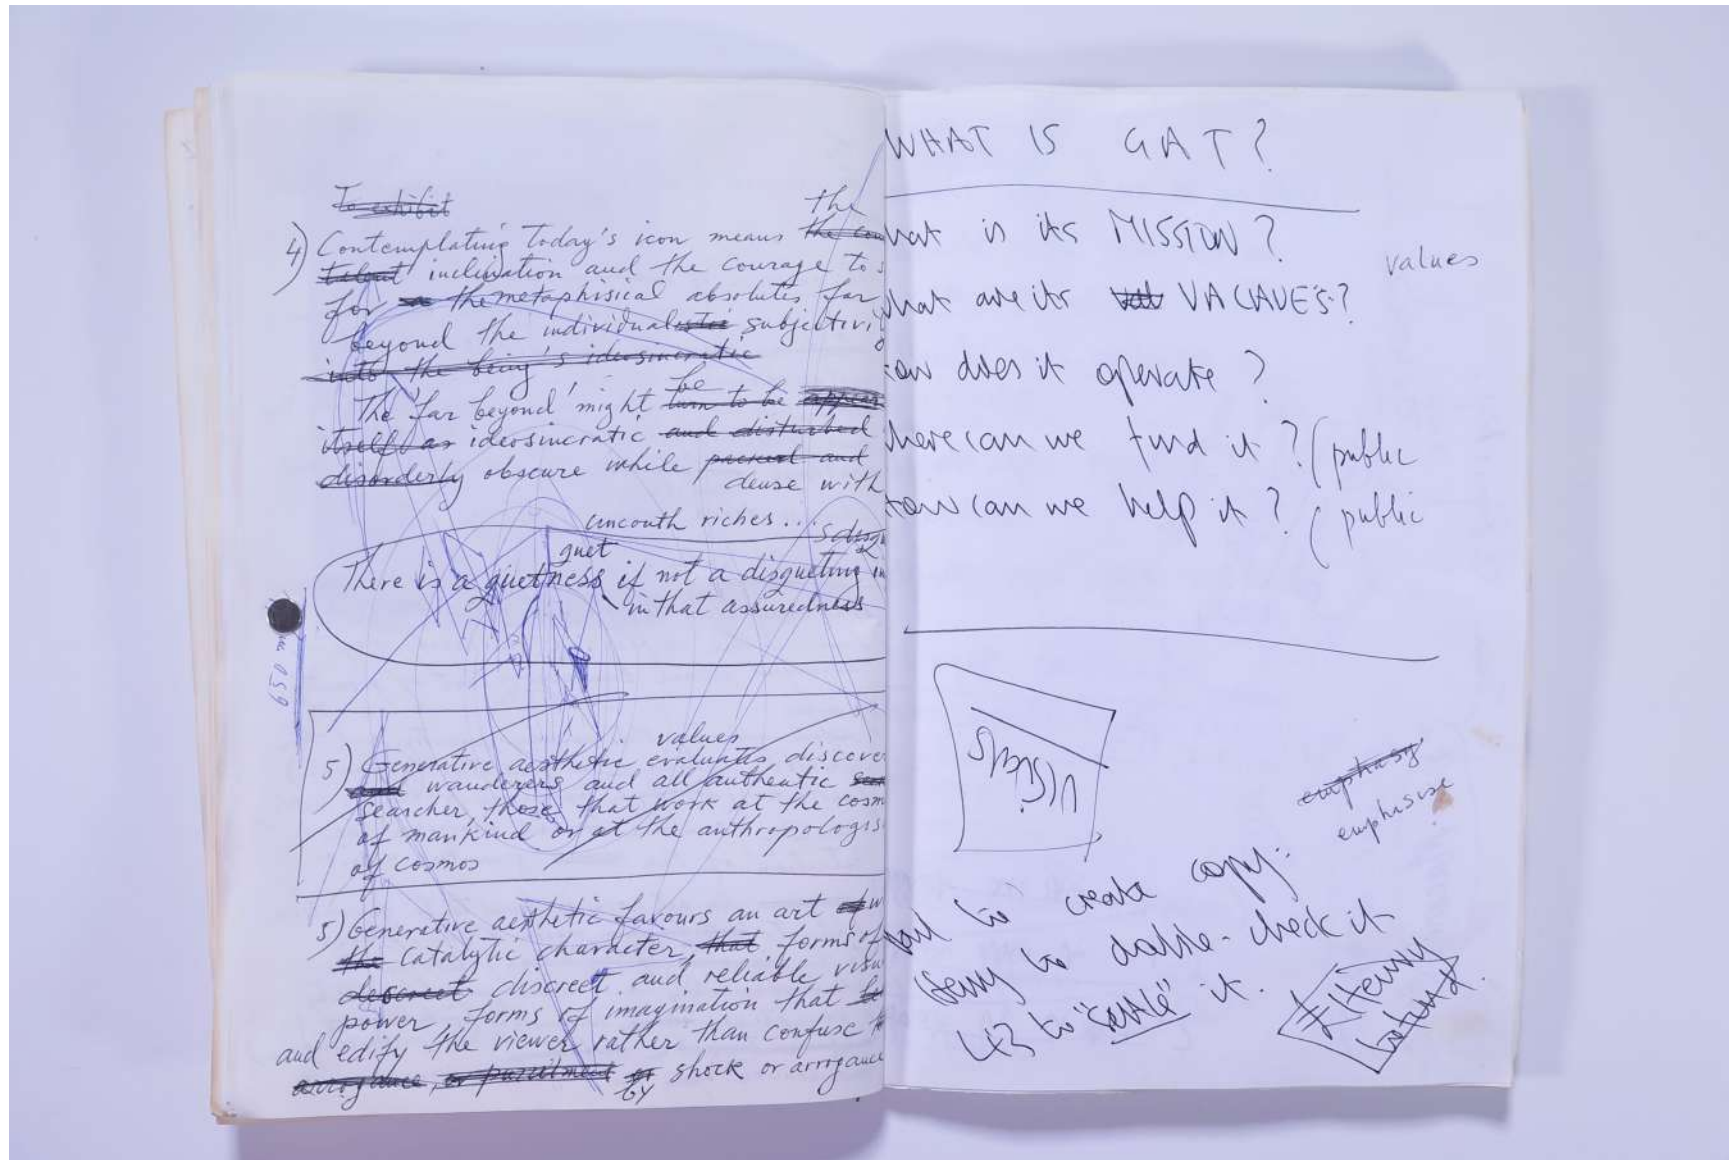 To exhibit
the
4) Contemplating Today's icon means the con
talent inclination and the courage to s
for the metaphisical absolutes far
beyond the individualistic subjectivi
into the being's ideosincratic
be
The 'far beyond' might turn to be appear
itself as ideosincratic and disturbed
disorderly obscure while packed and
dense with
uncouth riches...
guet
There is a guetness if not a disqueting in
in that assuredness
059
values
5) Generative aesthetic evaluates discover
and wanderers and all authentic
searcher, those that work at the cosm
of mankind or at the anthropologis
of cosmos
5) Generative aesthetic favours an art of w
the catalytic character, that forms of
descreet discreet and reliable visu
power, forms of imagination that be
and edify the viewer rather than confuse t
arrogance, or puzzlement or shock or arrogance
by
WHAT IS GAT?
hat is its MISSION?
values
hat are its val VALAUES?
ow does it operate?
here can we find it? (public
ow can we help it? (public
emphasy
emphasise
to create copy:
to double-check it
to "settle" it.